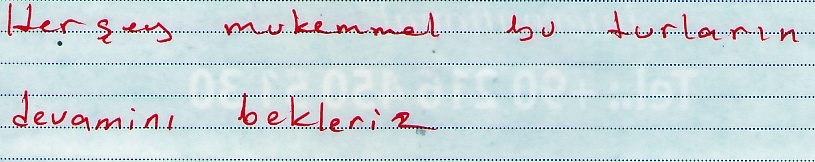 Her şey mukemmel bu turların
devamini bekleriz